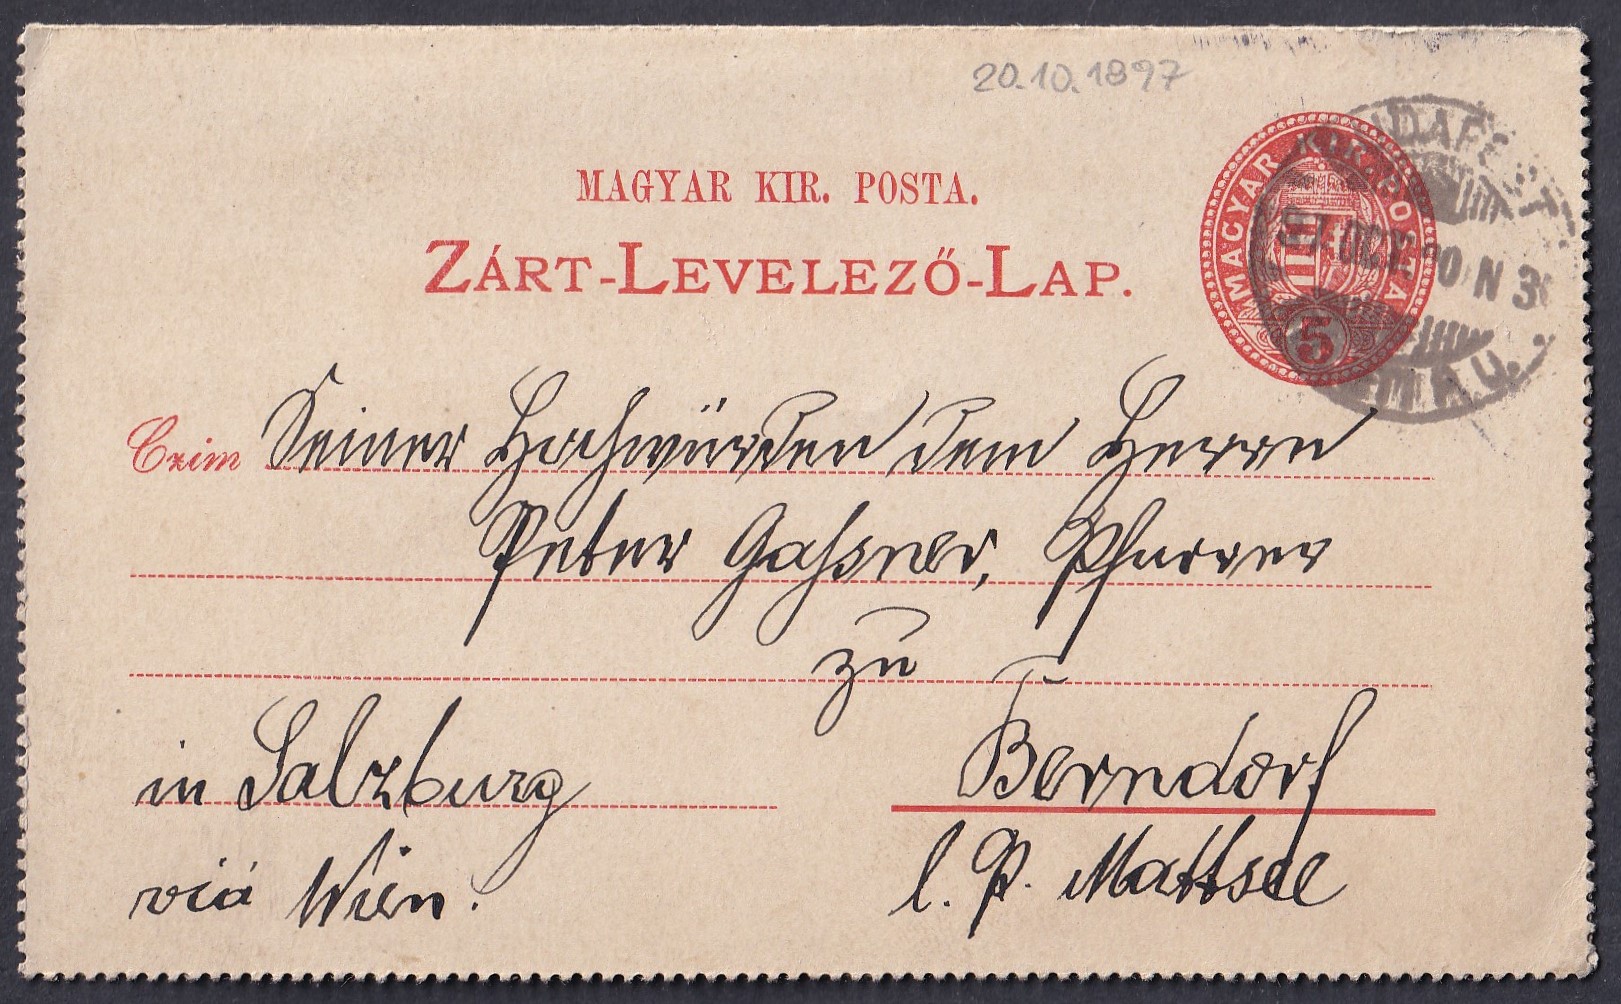 20.10.1897
MAGYAR KIR. POSTA.
ZÁRT-LEVELEZŐ-LAP.
MAGYAR KIR. POSTA
5
BUDAPEST
97. OCT. 20. N 3
Czim Seiner Hochwürden dem Herrn
Peter Gassner, Pfarrer
zu
in Salzburg Berndorf
viá Wien. l. P. Mattsee